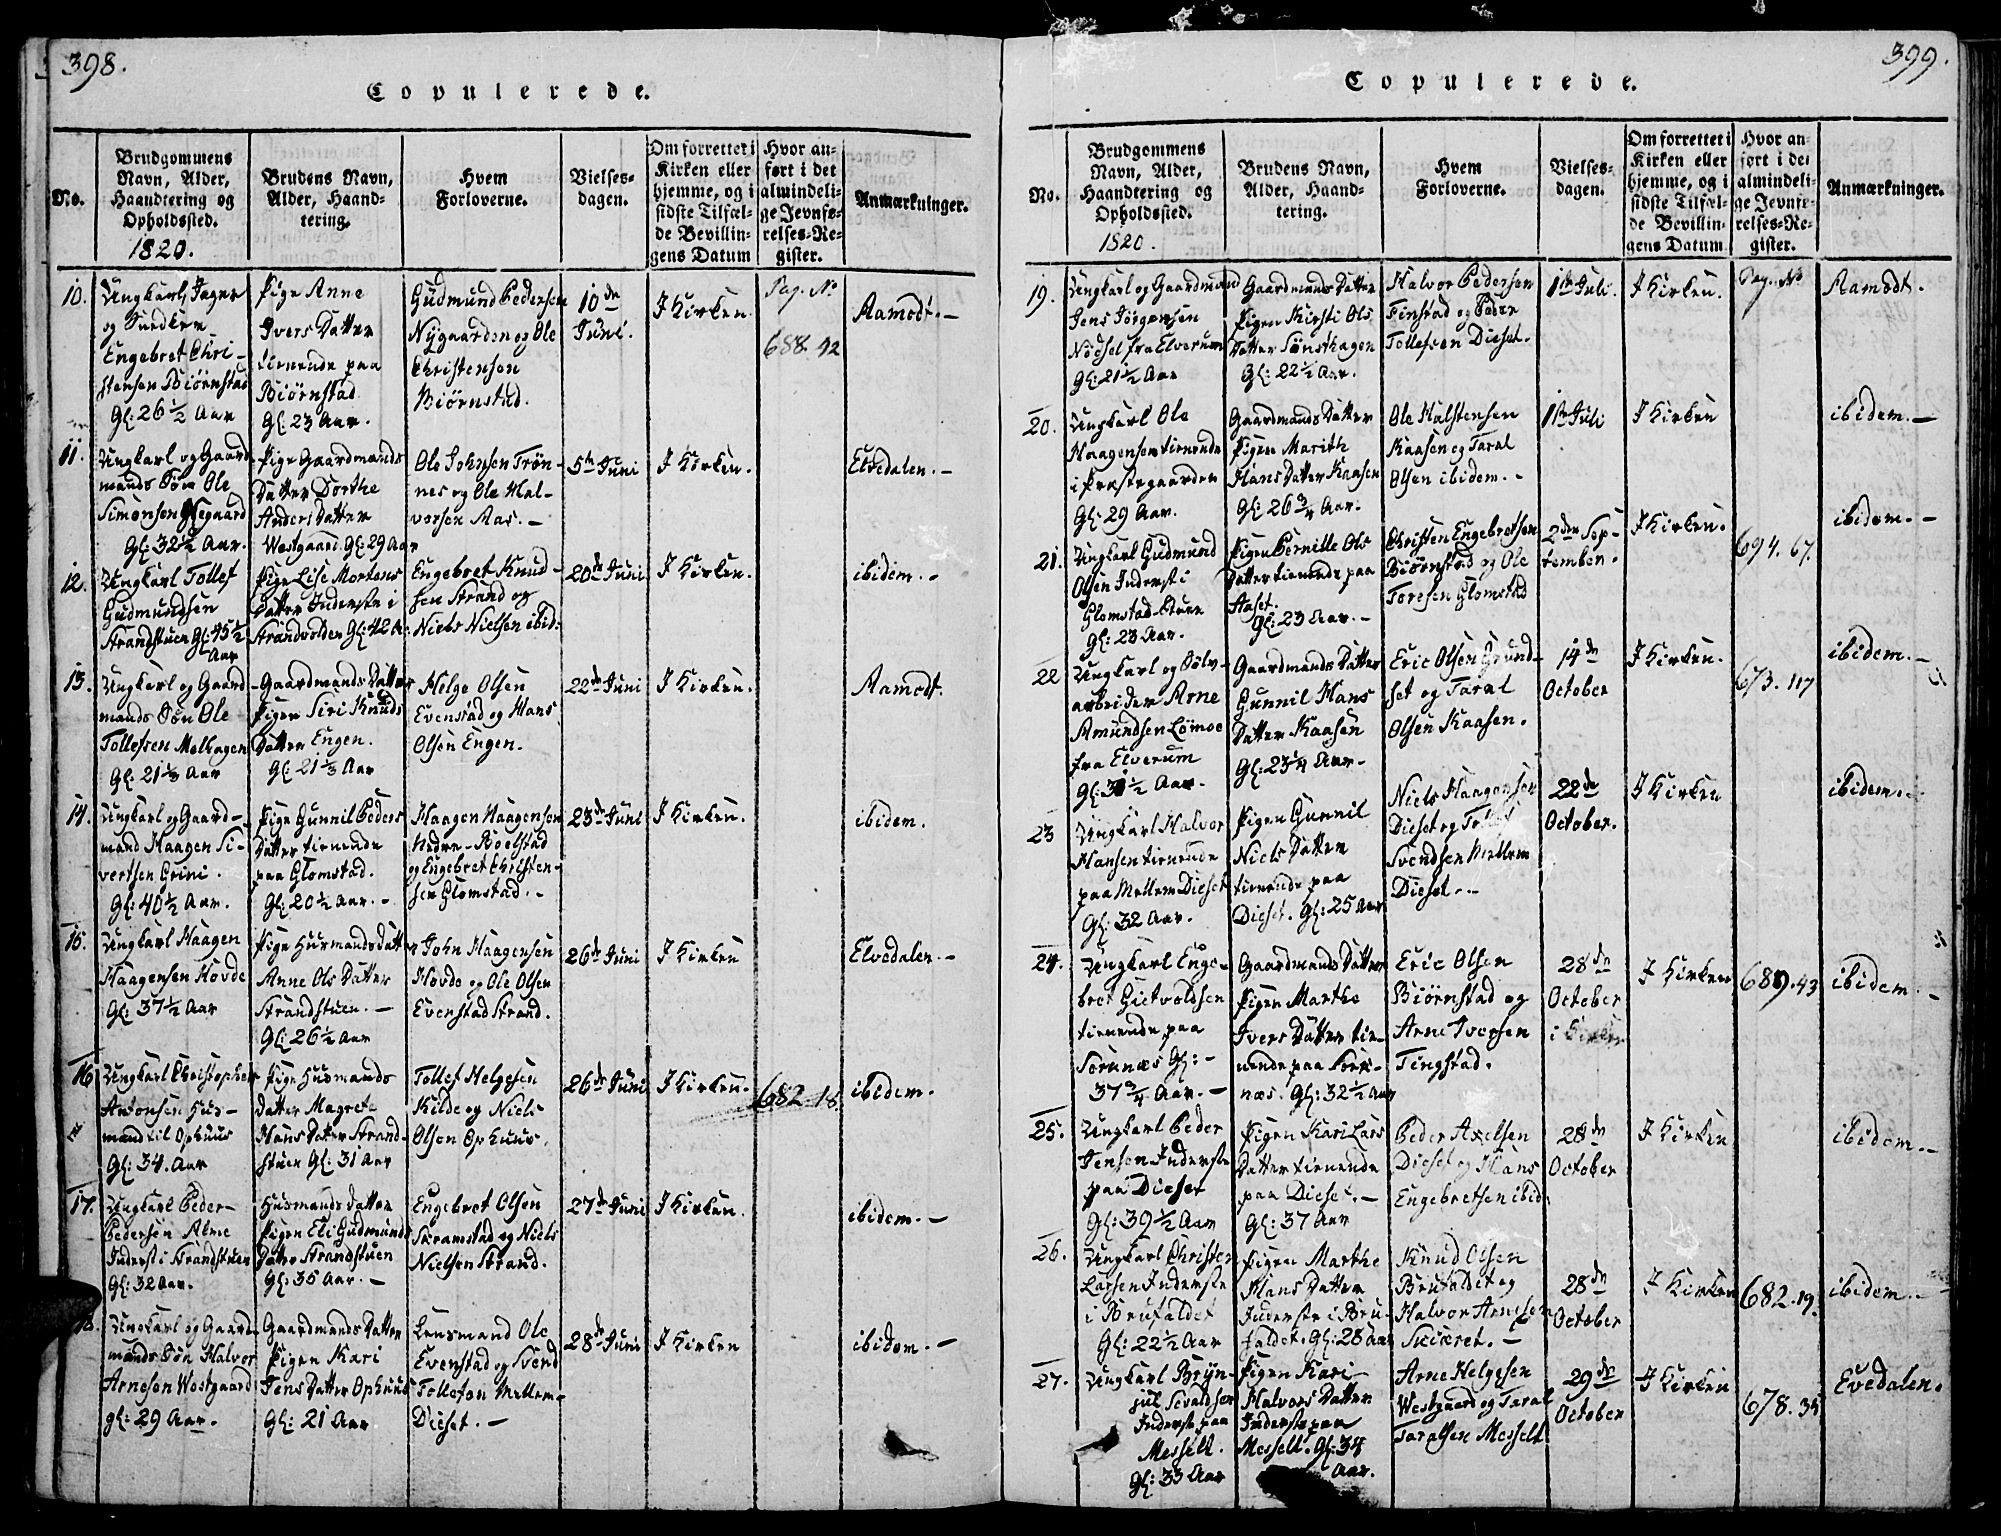 398.
Copulerede.
No.
Brudgommens
Navn, Alder,
Haandtering og
Opholdssted.
1820.
Brudens Navn,
Alder, Haand-
tering.
Hvem
Forloverne.
Vielses-
dagen.
Om forrettet i
Kirken eller
hjemme, og i
sidste Tilfæl-
de Bevillin-
gens Datum
Hvor an-
ført i det
almindeli-
ge Jevnfø-
relses-Re-
gister.
Anmærkninger.
10.
Ungkarl Jager
og
Engebret Chri-
stensen Biørnstad
Gl: 26 1/2 Aar
Pige Anne
Ivers Datter
tienende paa
Biørnstad.
Gl: 23 Aar.
Gudmund Pedersen
Nygaarden og Ole
Christensen
Biørnstad.
10de
Juni.
I Kirken.
Pag. No
688. 42
Aamodt.-
11.
Ungkarl og Gaard-
mands Søn Ole
Simonsen
Gl: 32 1/2 Aar.
Pige Gaardmands
Datter Dorthe
Anders Datter
Westgaard. Gl: 29 Aar
Ole Johnsen Trøn-
nes og Ole Hal-
vorsen Aas. -
5te Juni
I Kirken.
Elvedalen.-
12.
Ungkarl Tollef
Gudmundsen
Strandstuen Gl: 45 1/2
Aar
Pige Lise Mortens
Datter Inderste i
Strandvolden Gl: 42 A.
Engebret Knud-
sen Strand og
Niels Nielsen ibid:
20de Juni
I Kirken.
ibidem.-
13.
Ungkarl og Gaard-
mands Søn Ole
Tollefsen Melhagen
Gl: 21 1/3 Aar
Gaardmands Datter
Pigen Siri Knuds
Datter Engen.
Gl: 21 1/3 Aar
Helge Olsen
Evenstad og Hans
Olsen Engen.
22de Juni
I Kirken.
Aamodt.
14.
Ungkarl og Gaard-
mand Haagen Si-
vertsen Grini.
Gl: 40 1/2 Aar.
Pige Gunnil Peders
Datter tienende
paa Glomstad.
Gl: 20 1/2 Aar. -
Haagen Haagensen
Nedre-Boelstad
og Engebret Christen-
sen Glomstad. -
23de Juni
I Kirken.
ibidem.
15.
Ungkarl Haagen
Haagensen Hovde
Gl: 37 1/2 Aar
Pige Husmands Datt-
Anne Ols Datter
Strandstuen. -
Gl: 26 1/2 Aar
John Haagensen
Hovde og Ole Olsen
Evenstad Strand.
26de Juni
I Kirken
Elvedalen.-
16
Ungkarl Christopher
Antonsen Hus-
mand til Ophuus
Gl: 34. Aar
Pige Husmands
Datter Magrete
Hans Datter Strand-
stuen Gl: 31 Aar
Tollef Helgesen
Kilde og Niels
Olsen Ophuus.
26de Juni
I Kirken.
682 18.
ibidem.
17.
Ungkarl Peder-
Pedersen Alme
Inderst i Strandstuen
Gl: 32 Aar.
Husmands Datter
Pigen Eli Gudmunds
Datter Strandstuen
Gl: 35 Aar. -
Engebret Olsen
Skramstad og Niels
Nielsen Strand.
27de Juni
I Kirken.
ibidem.-
18.
Ungkarl og Gaard-
mands Søn Halvor
Arnesen Westgaard
gl: 29 Aar.
Gaardmands Datter
Pigen Kari
Jens Datter Ophuus
Gl: 21 Aar
Lensmand Ole
Evenstad og Svend
Tollefsen Mellem-
Dieset. -
28de Juni
I Kirken
ibidem. -
399.
Copulerede.
No.
Brudgommens
Navn, Alder,
Haandtering og
Opholdssted.
1820.
Brudens Navn,
Alder, Haand-
tering.
Hvem
Forloverne.
Vielses-
dagen.
Om forrettet i
Kirken eller
hjemme, og i
sidste Tilfæl-
de Bevillin-
gens Datum
Hvor an-
ført i det
almindeli-
ge Jevnfø-
relses-Re-
gister.
Anmærkninger.
19.
Ungkarl og Gaardmand
Jens Jørgensen
Nødset fra Elverum
Gl: 21 1/2 Aar
Gaardmands Datter
Pigen Kirsti Ols
Datter Sønsthagen
Gl: 22 1/2 Aar.
Halvor Pedersen
Finstad og Peder
Tollefsen Dieset.
1ste Juli.
I Kirken.
Pag. No
Aamodt.
20.
Ungkarl Ole
Haagensen tienende
i Præstegaarden
Gl: 29 Aar.
Gaardmands Datter
Pigen Marith
Hans Datter Kaasen
Gl: 26 3/4 Aar.
Ole Halstensen
Kaasen og Taral
Olsen ibidem. -
1ste Juli
I Kirken
ibidem.-
21.
Ungkarl Gudmund
Olsen Inderst i
Glomstad-Stuen
Gl: 23 Aar.
Pigen Pernille Ols
Datter tienende paa
Aaset.
Gl: 23 Aar. -
Christen Engebretsen
Biørnstad og Ole
Toresen Glomstad
2den Sep-
tember.
I Kirken.
694. 67.
ibidem.-
22
Ungkarl og Sølv-
arbeider Arne
Amundsen Lømoe
fra Elverum
Gl: 31 1/2 Aar.
Gaardmands Datter
Gunnil Hans
Datter Kaasen
Gl: 23 1/4 Aar.
Eric Olsen Grund-
set og Taral
Olsen Kaasen.
14de
October
I Kirken.
673. 117
ibidem.-
23
Ungkarl Halvor
Hansen tienende
paa Mellem Dieset
Gl: 32 Aar.
Pigen Gunnil
Niels Datter
tienende paa
Dieset. Gl: 25 Aar
Niels Haagensen
Dieset og Tollef
Svendsen Mellem
Dieset. -
22de
October.
I Kirken
ibidem.-
24.
Ungkarl Enge-
bret Gietvoldsen
tienende paa
Sorknæs Gl: -
37 3/4 Aar. -
Gaardmands Datter
Pigen Marthe
Ivers Datter tie-
nende paa Sork-
næs. Gl: 32 1/2 Aar
Eric Olsen
Biørnstad og
Arne Iversen
Tingstad.
28de
October
i Kirken
I Kirken
689. 43
ibidem.-
25.
Ungkarl Peder
Jensen Inderste
paa Dieset
Gl: 39 1/2 Aar
Pigen Kari Lars
Datter tienende
paa Dieset. -
Gl: 37 Aar
Peder Axelsen
Dieset og Hans
Engebretsen ibid.
28de
October
I Kirken
ibidem.-
26.
Ungkarl Christen
Larsen Inderste
i Brufaldet
Gl: 22 1/2 Aar
Pigen Marthe
Hans Datter
Inderste i Bru-
faldet. Gl: 28 Aar
Knud Olsen
Brufaldet og
Halvor Arnesen
Skiæret. -
28de
October
I Kirken
682. 19.
ibidem.-
27.
Ungkarl Bryn-
jul Sevaldsen
Inderste paa
Messelt.
Gl: 33 Aar
Pigen Kari
Halvors Datter
Inderste paa
Messelt. Gl: 34
Aar.
Arne Helgesen
Westgaard og Taral
Taralsen Messelt
29de
October
I Kirken
678. 35
Evedalen.